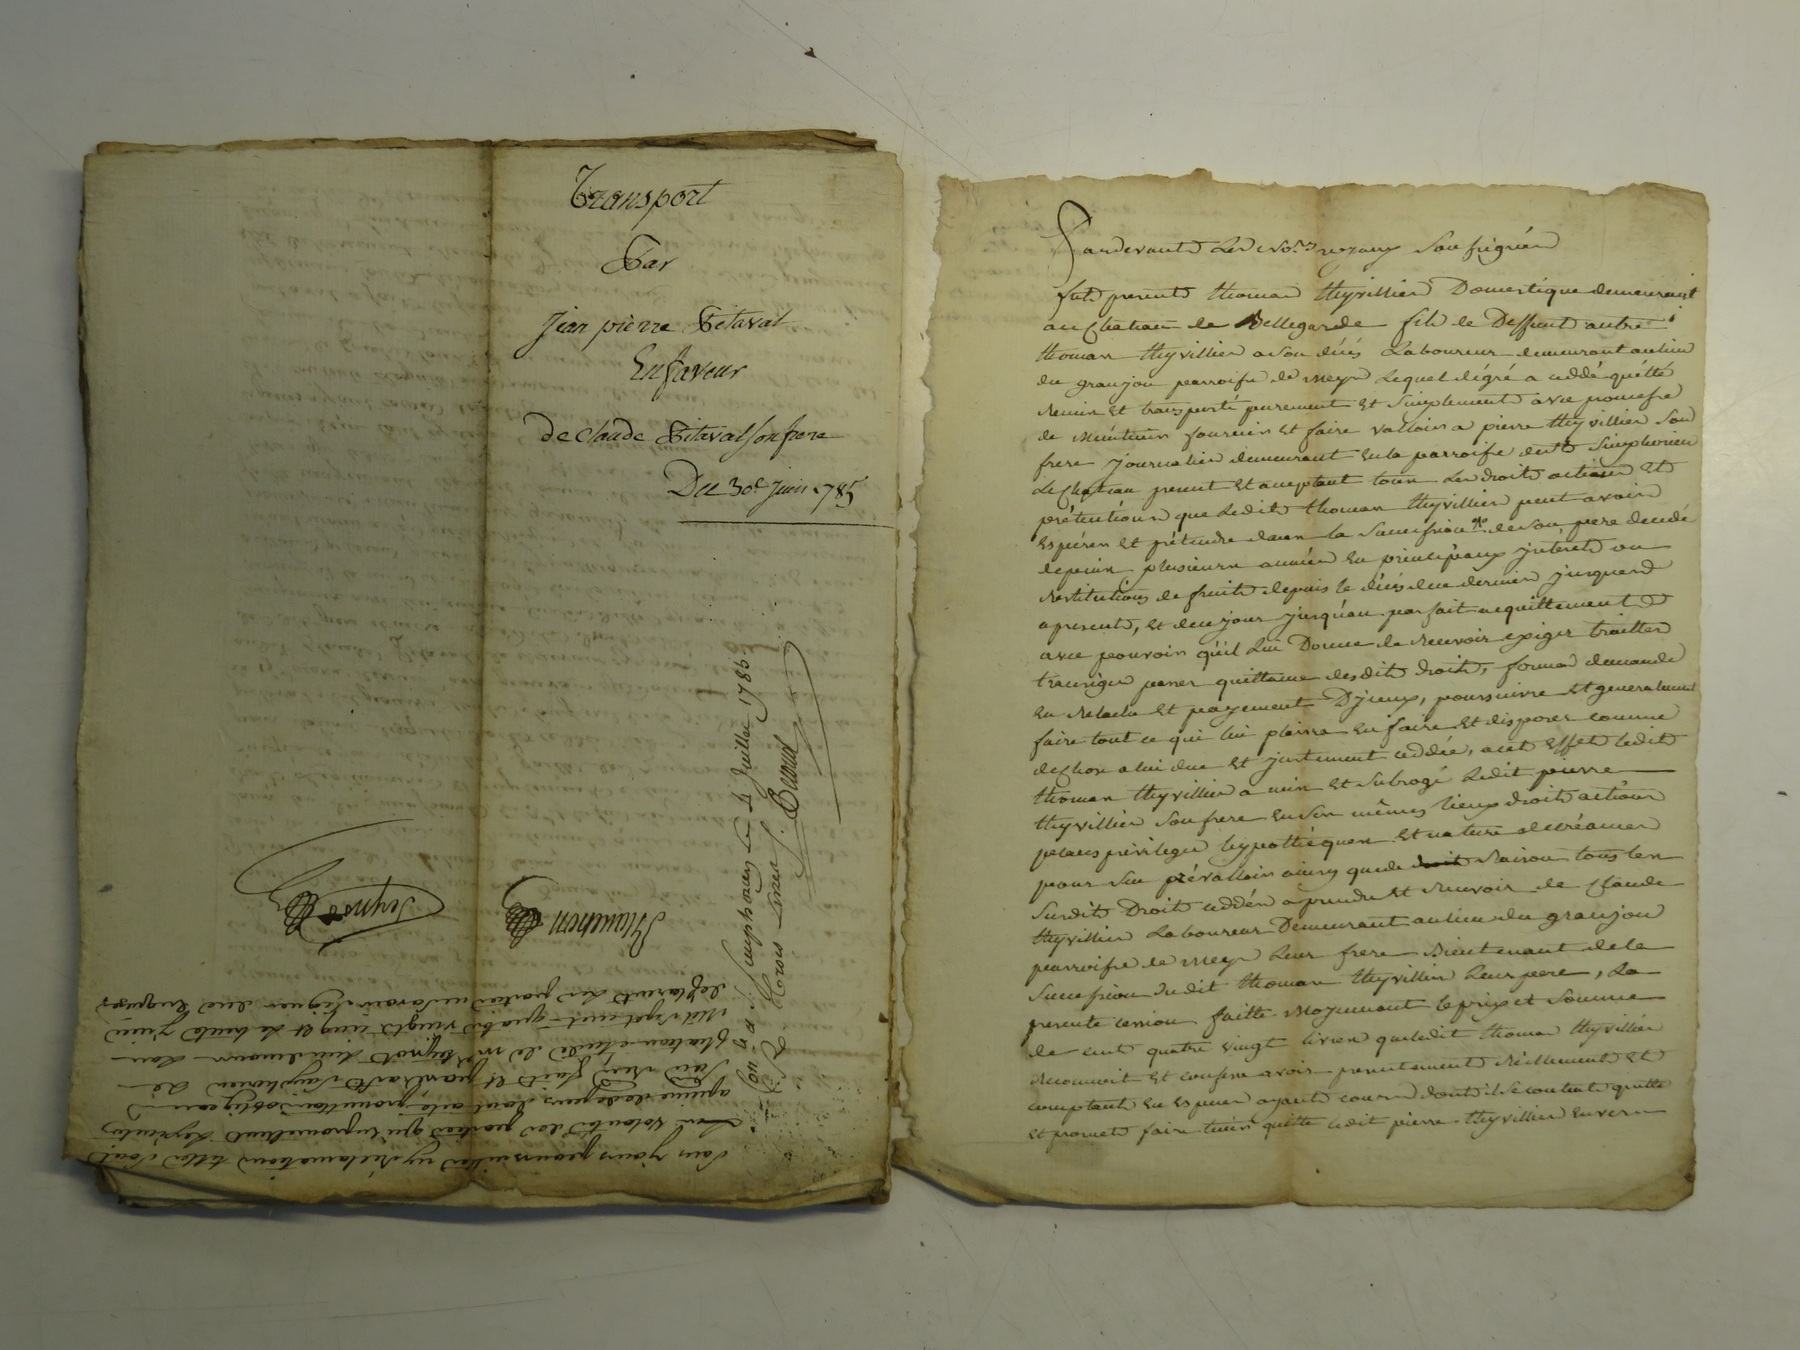 Transport
Par
Jean pierre Pitaval
En faveur
de Claude Pitaval son frere
Du 30e Juin 1785
Con. a St. Simphorien Le 4 Juillet 1785
R. trois Livres
Pardevant Les No.res royaux Soussignés
fut present thomas thyvillier Domestique demeurant
au Chateau de Bellegarde fils de Deffunt autre
thomas thyvillier a son décés Laboureur demeurant au lieu
du granjon parroisse de Meys Lequel dégré a ceddé quitté
Remis Et transporté purement Et Simplement avec promesse
de Maintenir fournir Et faire Valloir a pierre thyvillier Son
frere journalier demeurant En la parroisse de St Simphorien
Le Chateau present Et acceptant tous Les droits actions Et
prétentions que Ledit thomas thyvillier peut avoir
Espérer Et prétendre dans la Succession de Son pere decedé
depuis plusieurs années En principaux jntérets ou
Restitutions de fruits depuis le décés de ce dernier jusques
a present, Et de ce jour jusqu'au parfait acquittement
avec pouvoir qu'il Lui Donne de Recevoir exiger traitter
transiger passer quittance desdits droits, former demande
En Relache Et payement D'jceux, poursuivre Et generalement
faire tout ce qui lui plaira En faire Et disposer comme
de Chose a lui due Et justement ceddée, a cet Effet Ledit
thomas thyvillier a mis Et Subrogé Ledit pierre
thyvillier Son frere En Ses mêmes lieux droits actions
places privileges hypothéques Et nature de créances
pour S'en prévalloir ainsy que de Raison tous les
Susdits Droits ceddés a prendre Et Recevoir de Claude
thyvillier Laboureur Demeurant au lieu du granjon
parroisse de Meys Leur frere Bientenant de la
Succession dudit thomas thyvillier Leur pere, La
presente cession faitte Moyennant le prix et Somme
de cent quatre vingt livres que Ledit thomas thyvillier
Reconnoit Et confesse avoir presentement Réellement Et
comptant En Especes ayant cours dont il Se contente quitte
Et promet faire tenir quitte Ledit pierre thyvillier Envers
Sans jamais revenir ny Réclamations telles Sont
Les volontés des parties qui ont promis
a peine de dépens dont acte, promettant obligeant
fait et passé a St Simphorien Le
Chateau Etude de Mr Seignoret l'un de nous L'an
Mil Sept cent quatre vingts cinq et Le trente juin
declarent Les parties ne Savoir Signer de ce Enquises